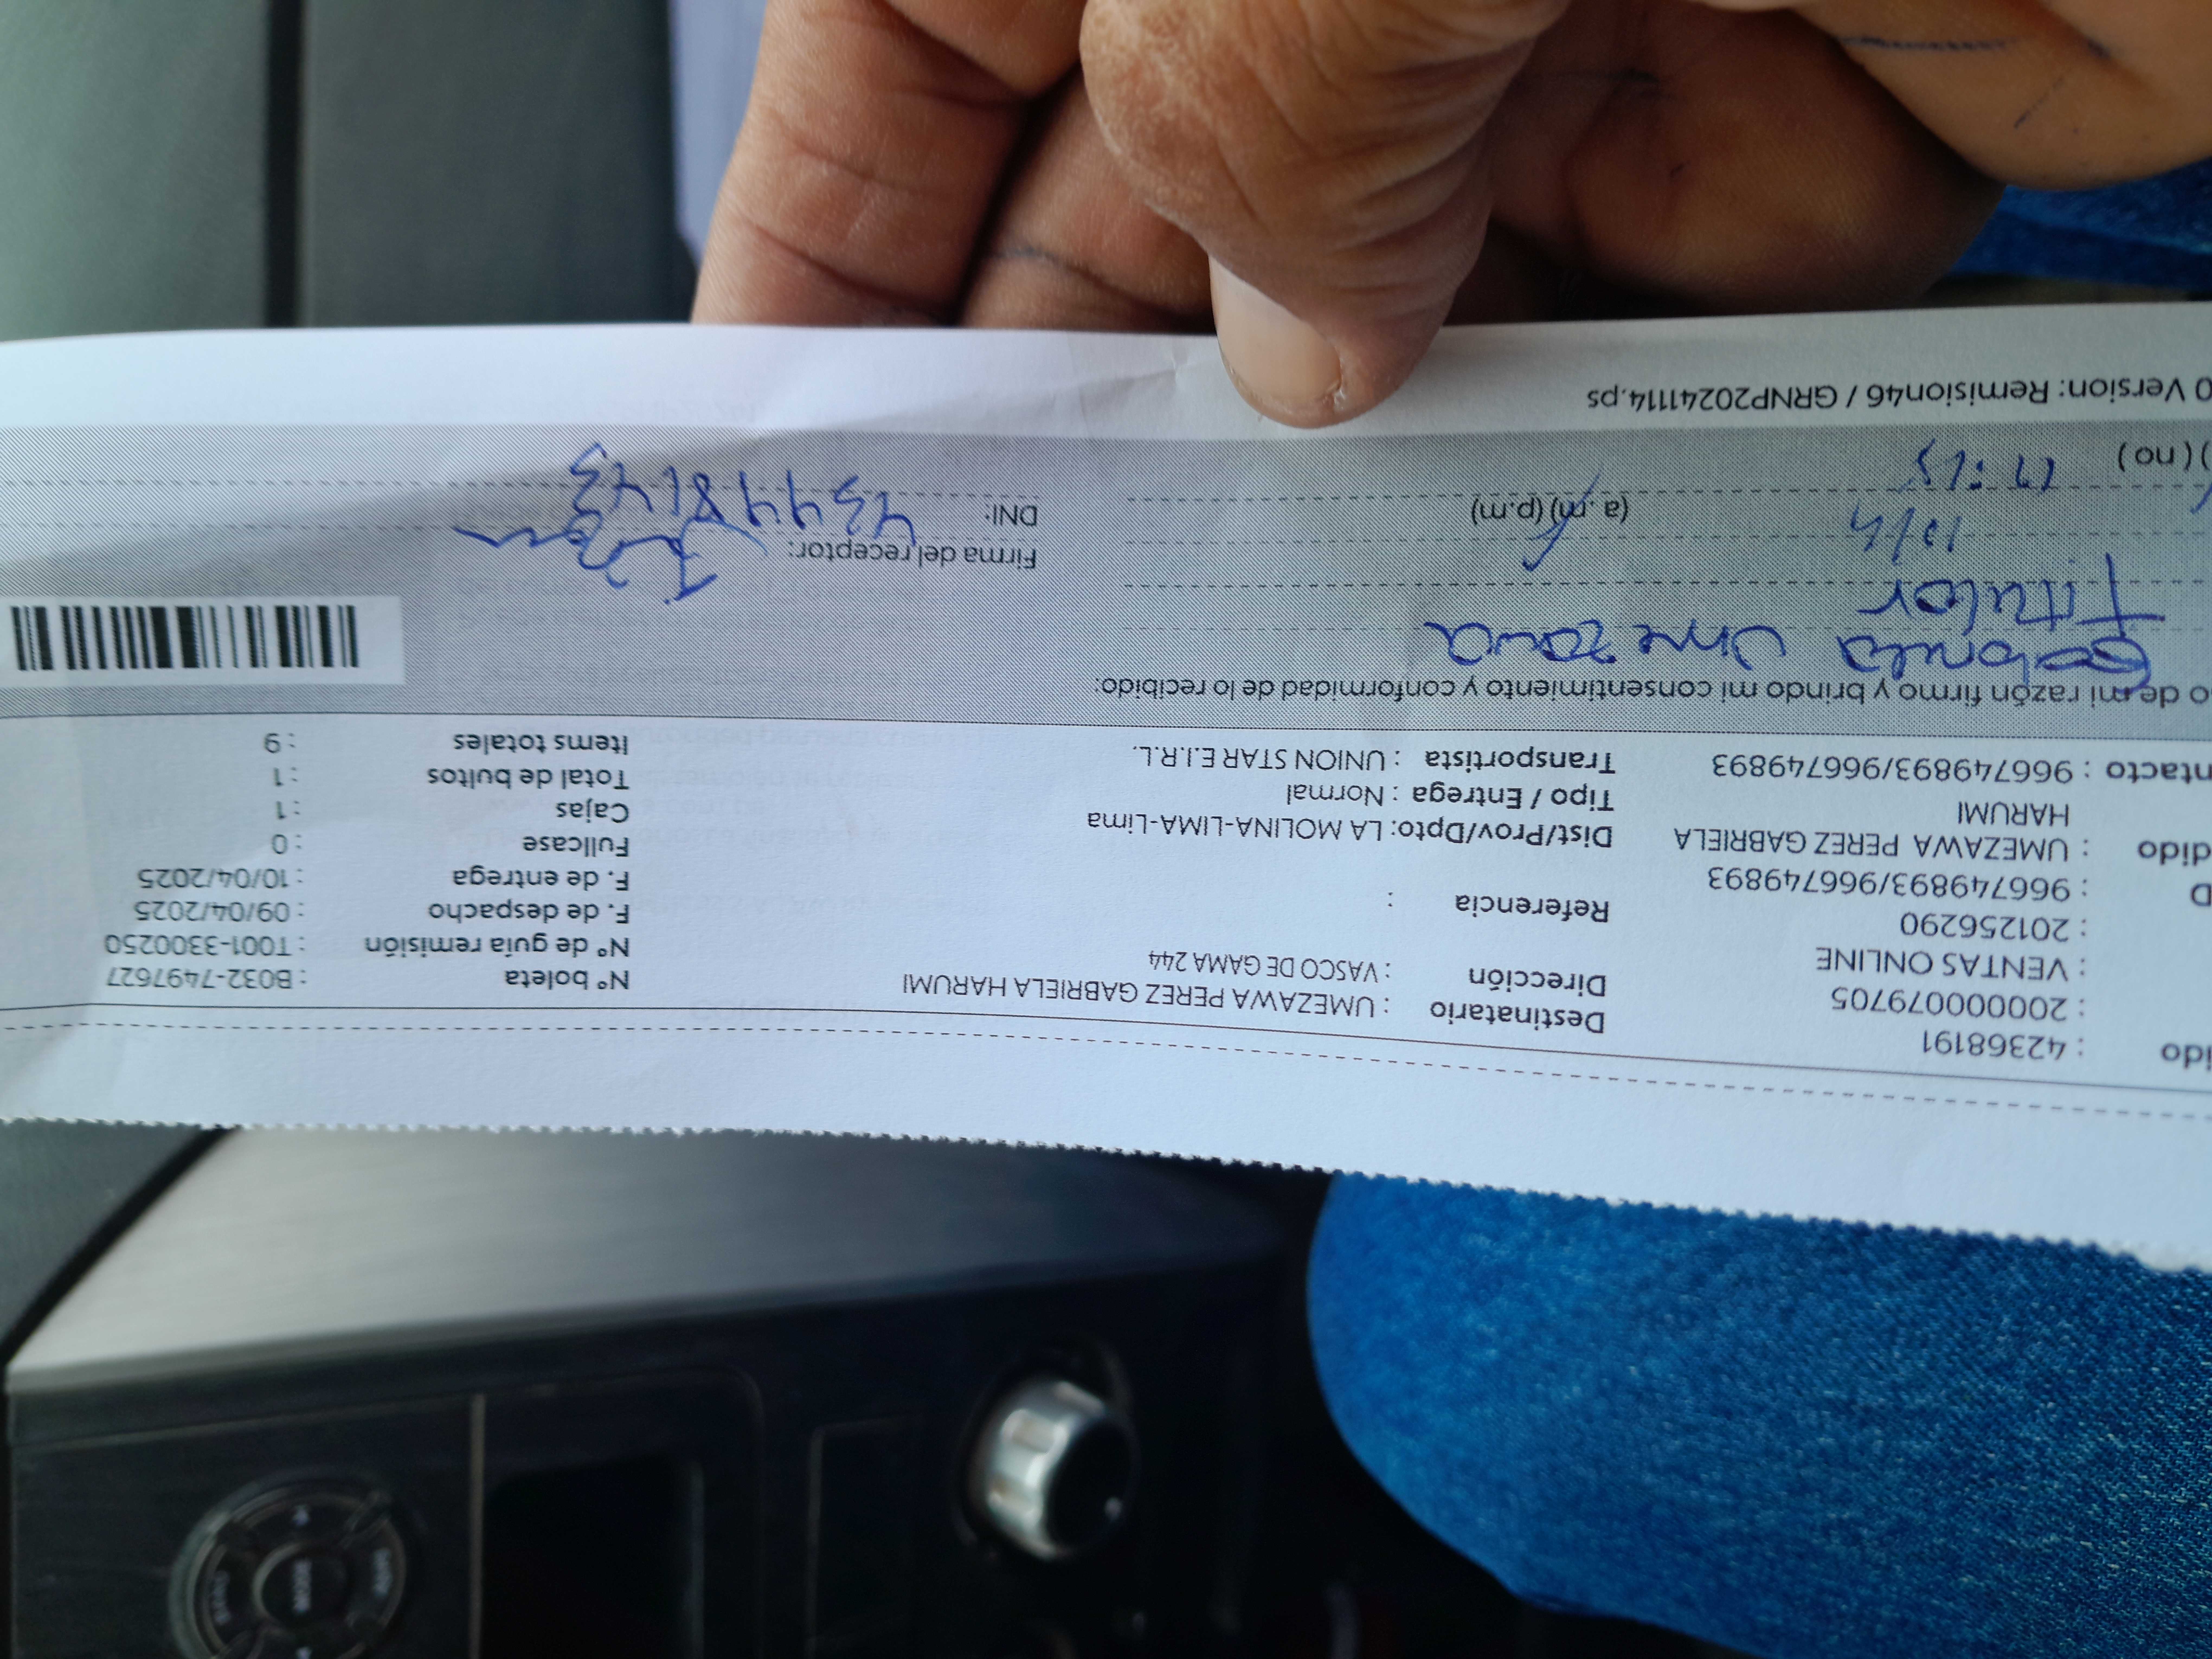 ido : 42368191
: 20000079705
: VENTAS ONLINE
: 201256290
D : 966749893/966749893
dido : UMEZAWA PEREZ GABRIELA
HARUMI
ntacto : 966749893/966749893
Destinatario : UMEZAWA PEREZ GABRIELA HARUMI
Dirección : VASCO DE GAMA 244
Referencia :
Dist/Prov/Dpto: LA MOLINA-LIMA-Lima
Tipo / Entrega : Normal
Transportista : UNION STAR E.I.R.L.
N° boleta : B032-7497627
N° de guía remisión : T001-3300250
F. de despacho : 09/04/2025
F. de entrega : 10/04/2025
Fullcase : 0
Cajas : 1
Total de bultos : 1
Items totales : 9
o de mi razón firmo y brindo mi consentimiento y conformidad de lo recibido:
Gabriela Umezawa
Titular
10/4
(a.m) (p.m)
) ( no )
Firma del receptor:
DNI:
0 Version: Remision46 / GRNP20241114.ps